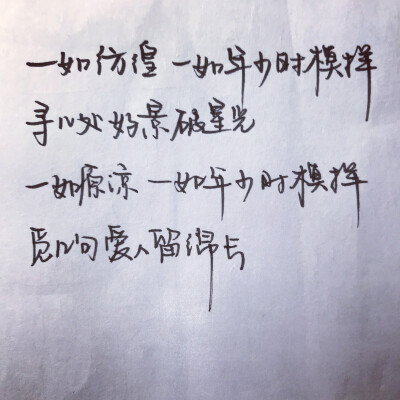 一如彷徨 一如年少时模样
寻几处好景破星光
一如原凉 一如年少时模样
觅几句爱人留得与